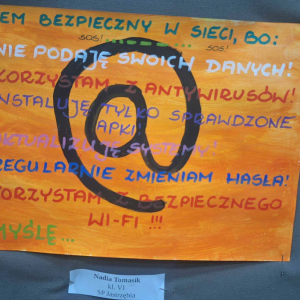 EM BEZPIECZNY W SIECI, BO:
SOS!
SOS!
NIE PODAJĘ SWOICH DANYCH!
KORZYSTAM Z ANTYWIRUSÓW!
INSTALUJĘ TYLKO SPRAWDZONE
APKI!
AKTUALIZUJĘ SYSTEMY!
REGULARNIE ZMIENIAM HASŁA!
KORZYSTAM Z BEZPIECZNEGO
WI-FI !!!
MYŚLĘ...
Nadia Tomasik
kl. VI
SP Jastrzębia